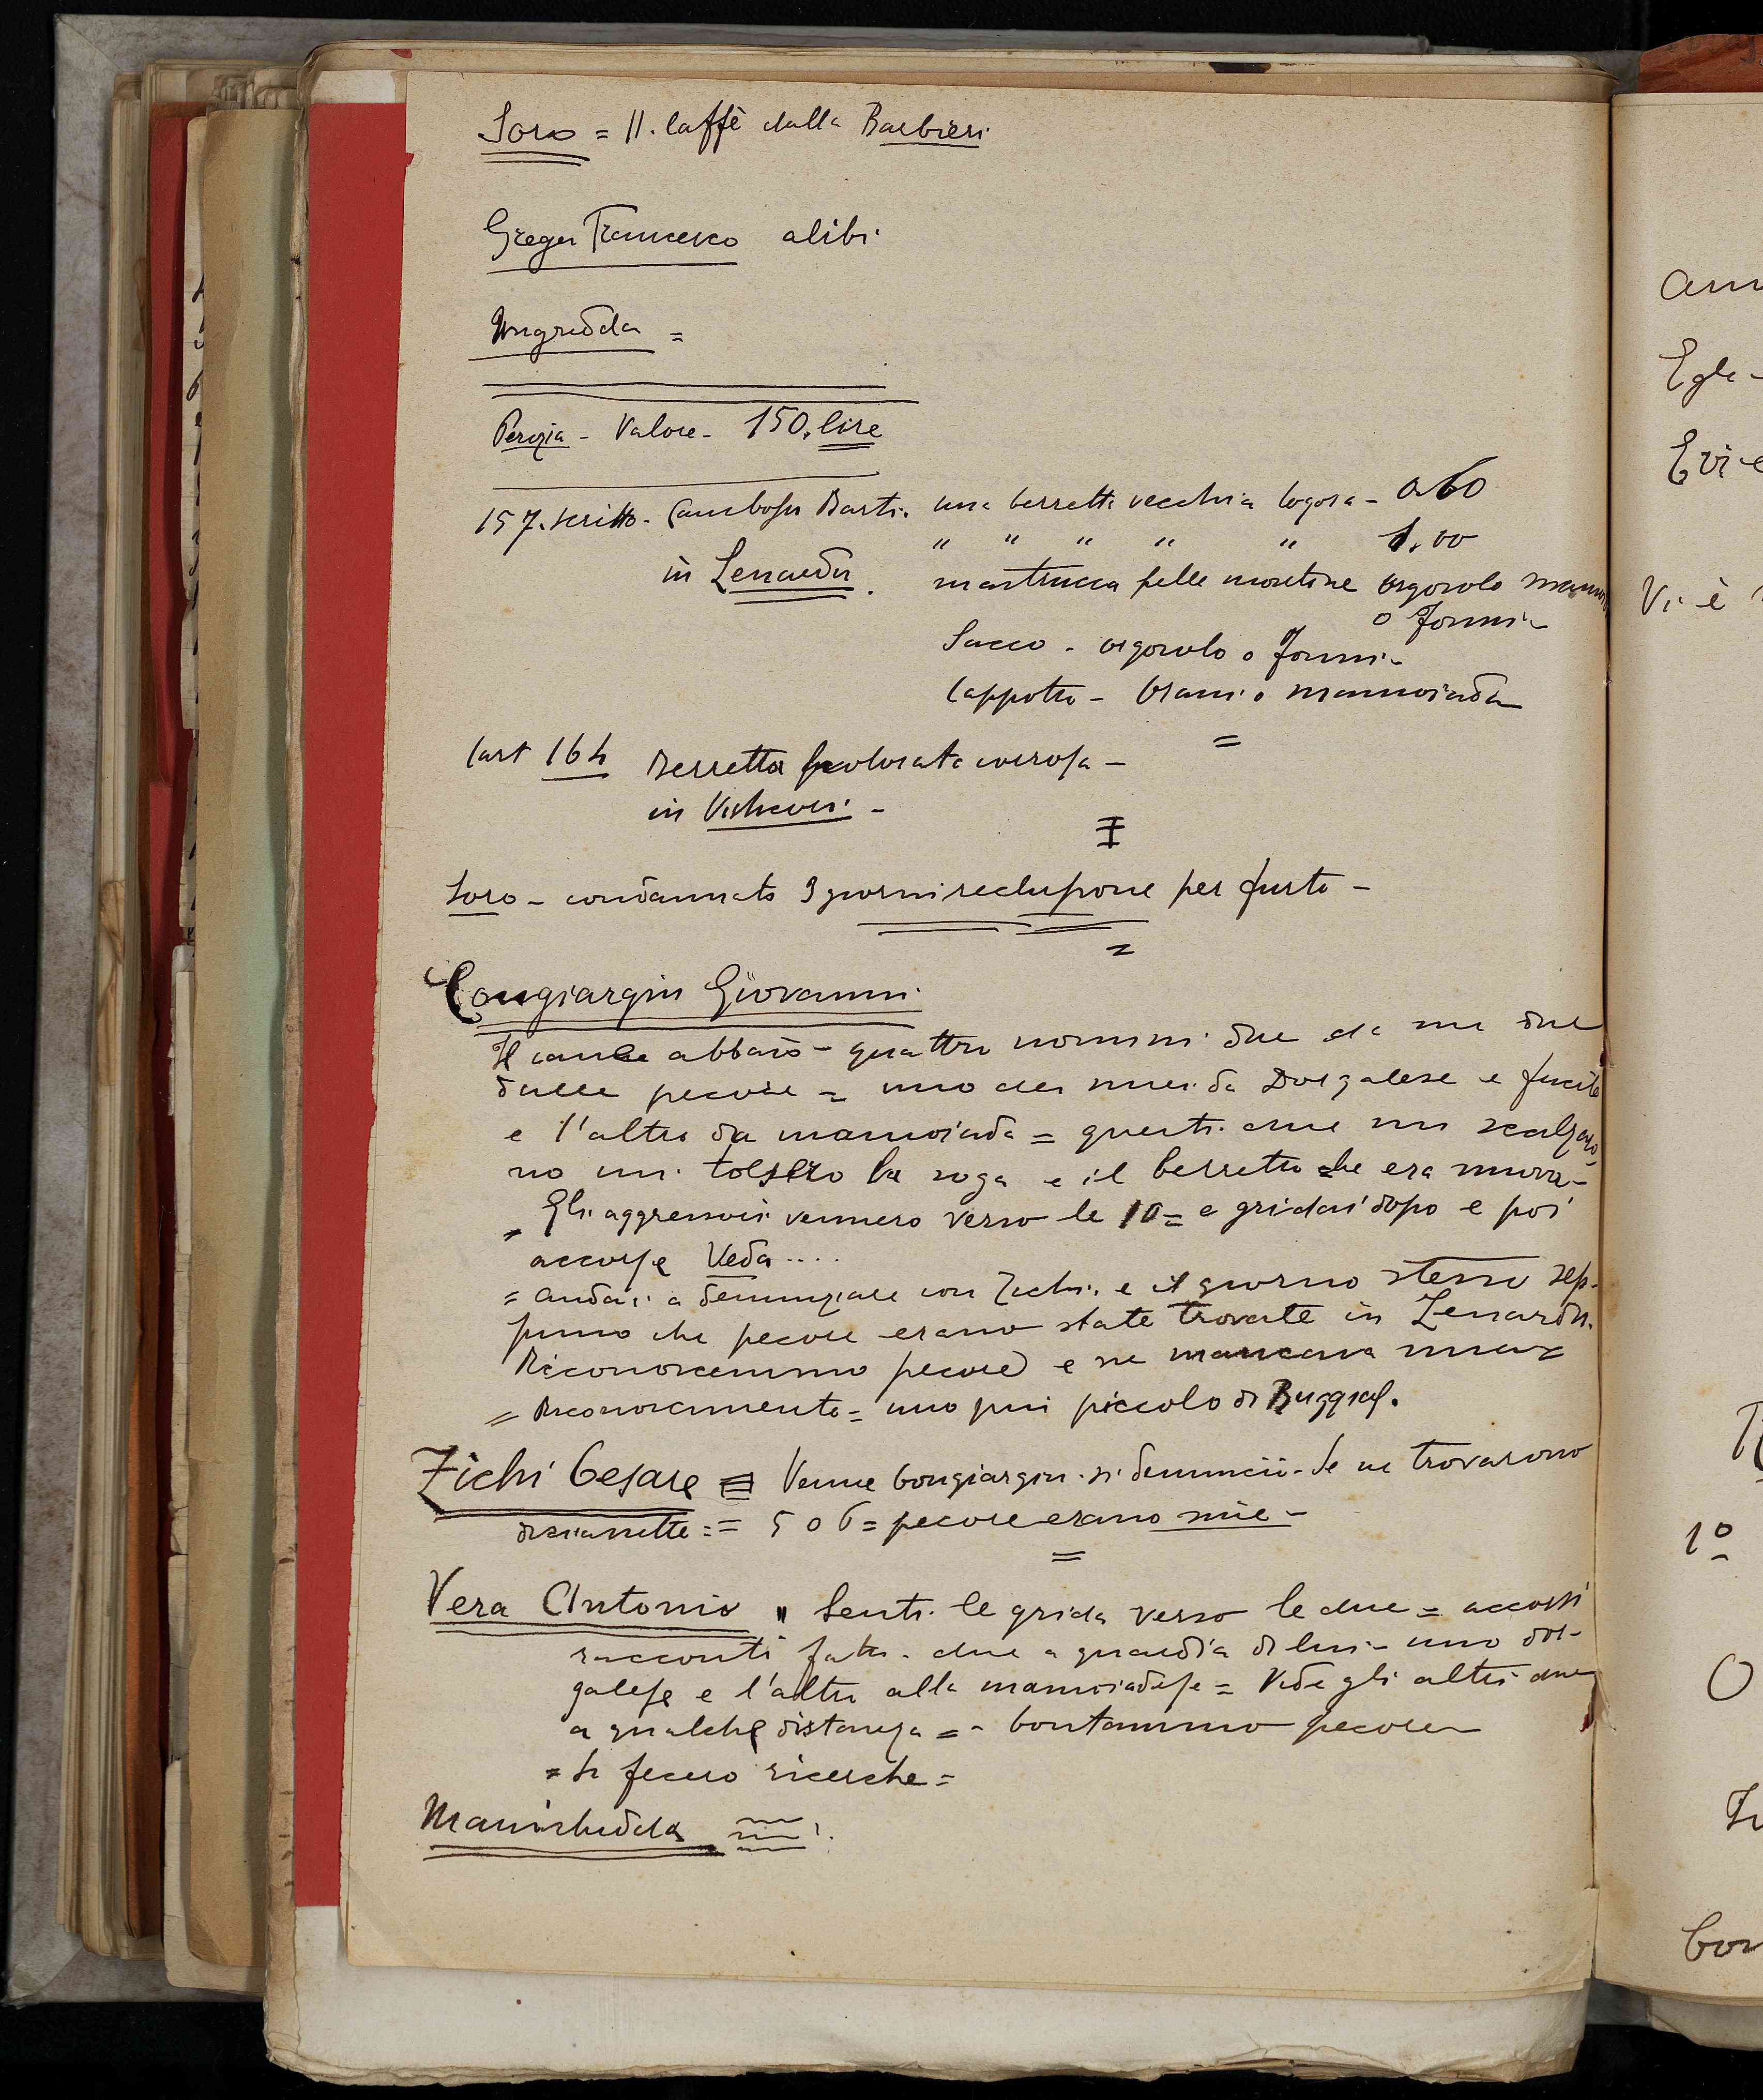 Soro = 11. Caffè dalla Barbieri
Gregu Francesco alibi
Ungredda =
Perizia - Valore - 150. lire
157. scritto - Cambosu Basti. una berretta vecchia logora - 0.60
" " " " " 1.00
in Lenardu. mastrucca pelle montone orgosolo
o Fonni -
Sacco - orgosolo o Fonni -
Cappotto - Orani o mamoiada
=
Cart 164 Berretta scolorata corrosa -
in
Soro - condannato 3 giorni reclusione per furto -
=
Congiargiu Giovanni
Il cane abbaiò - quattro uomini due da me due
dalle pecore = uno dei miei da Dorgalese e fucile
e l'altro da mamoiada = questi due mi scalzaro-
no mi tolsero la soga e il berretto che era nuova -
= Gli aggressori vennero verso le 10 = e gridai dopo e poi
accorse Veda....
= andai a denunziare con Zichi. e il giorno stesso sep-
pimo che pecore erano state trovate in Lenardu.
Riconoscemmo pecore e ne mancava
= Riconoscimento = uno più piccolo di
Zichi Cesare = Venne Congiargiu. si denunciò - Se ne trovarono
diciasette = = 5 o 6 = pecore erano mie -
=
Vera Antonio " Sentì le grida verso le due = accorsi
raccontò fatto. due a guardia di lui - uno dor-
galese e l'altro alla mamoiadese = Vide gli altri due
a qualche distanza = - Contammo pecore
= Si fecero ricerche =
Manichedda
am
Egle -
Evi e
Vi è
1º
O
Con